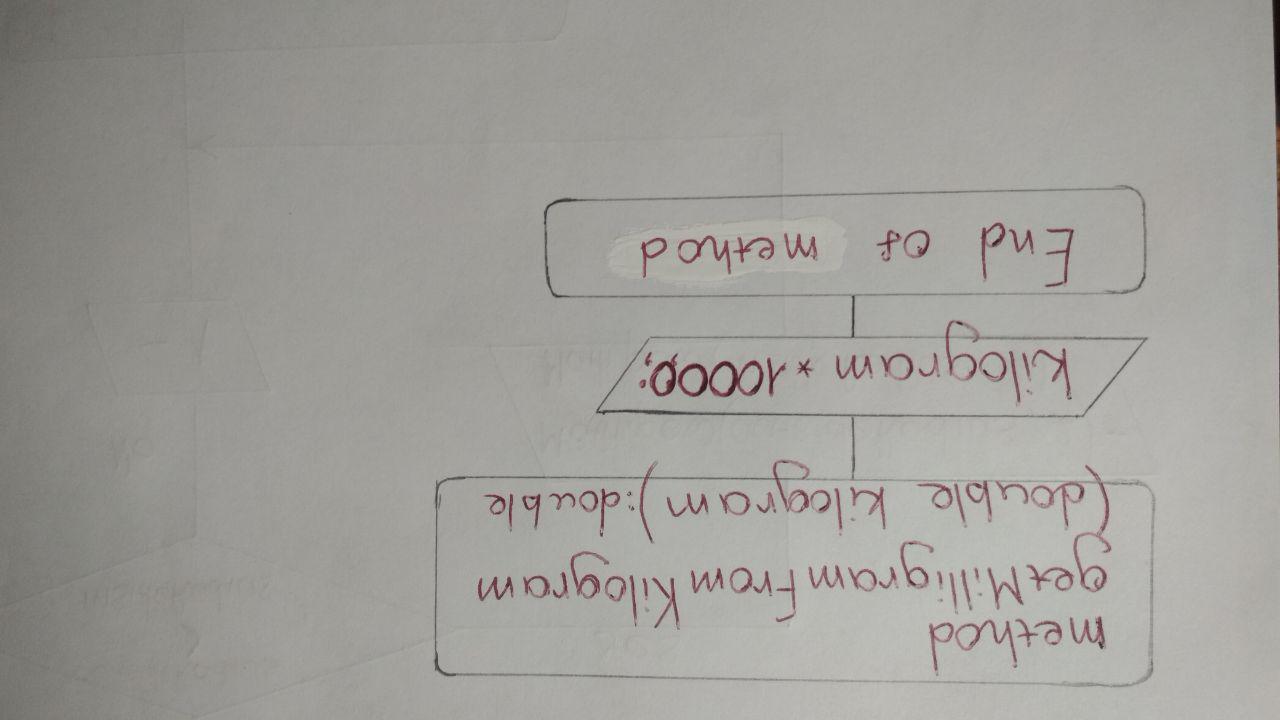 method
getMilligramFromKilogram
(double kilogram):double
kilogram * 10000;
End of method